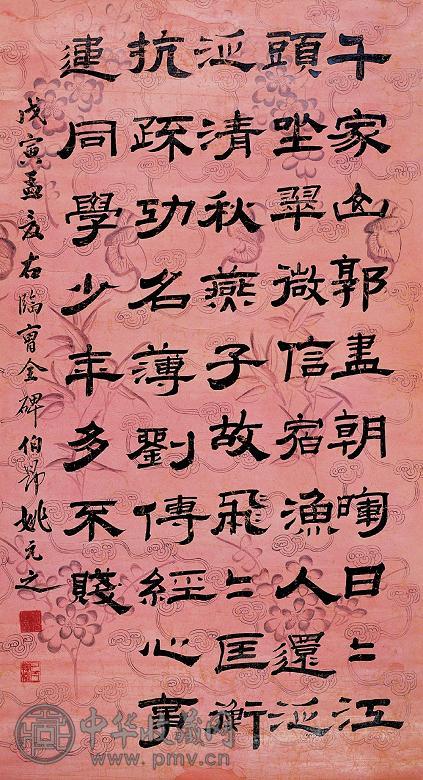 千家山郭盡朝暉日〻江
頭坐翠微信宿漁人還泛
泛清秋燕子故飛〻匡衡
抗疏功名薄劉傳經心事
違同學少年多不賤
戊寅孟夏右臨曹全碑伯昂姚元之
中华收藏网
www.pmv.cn